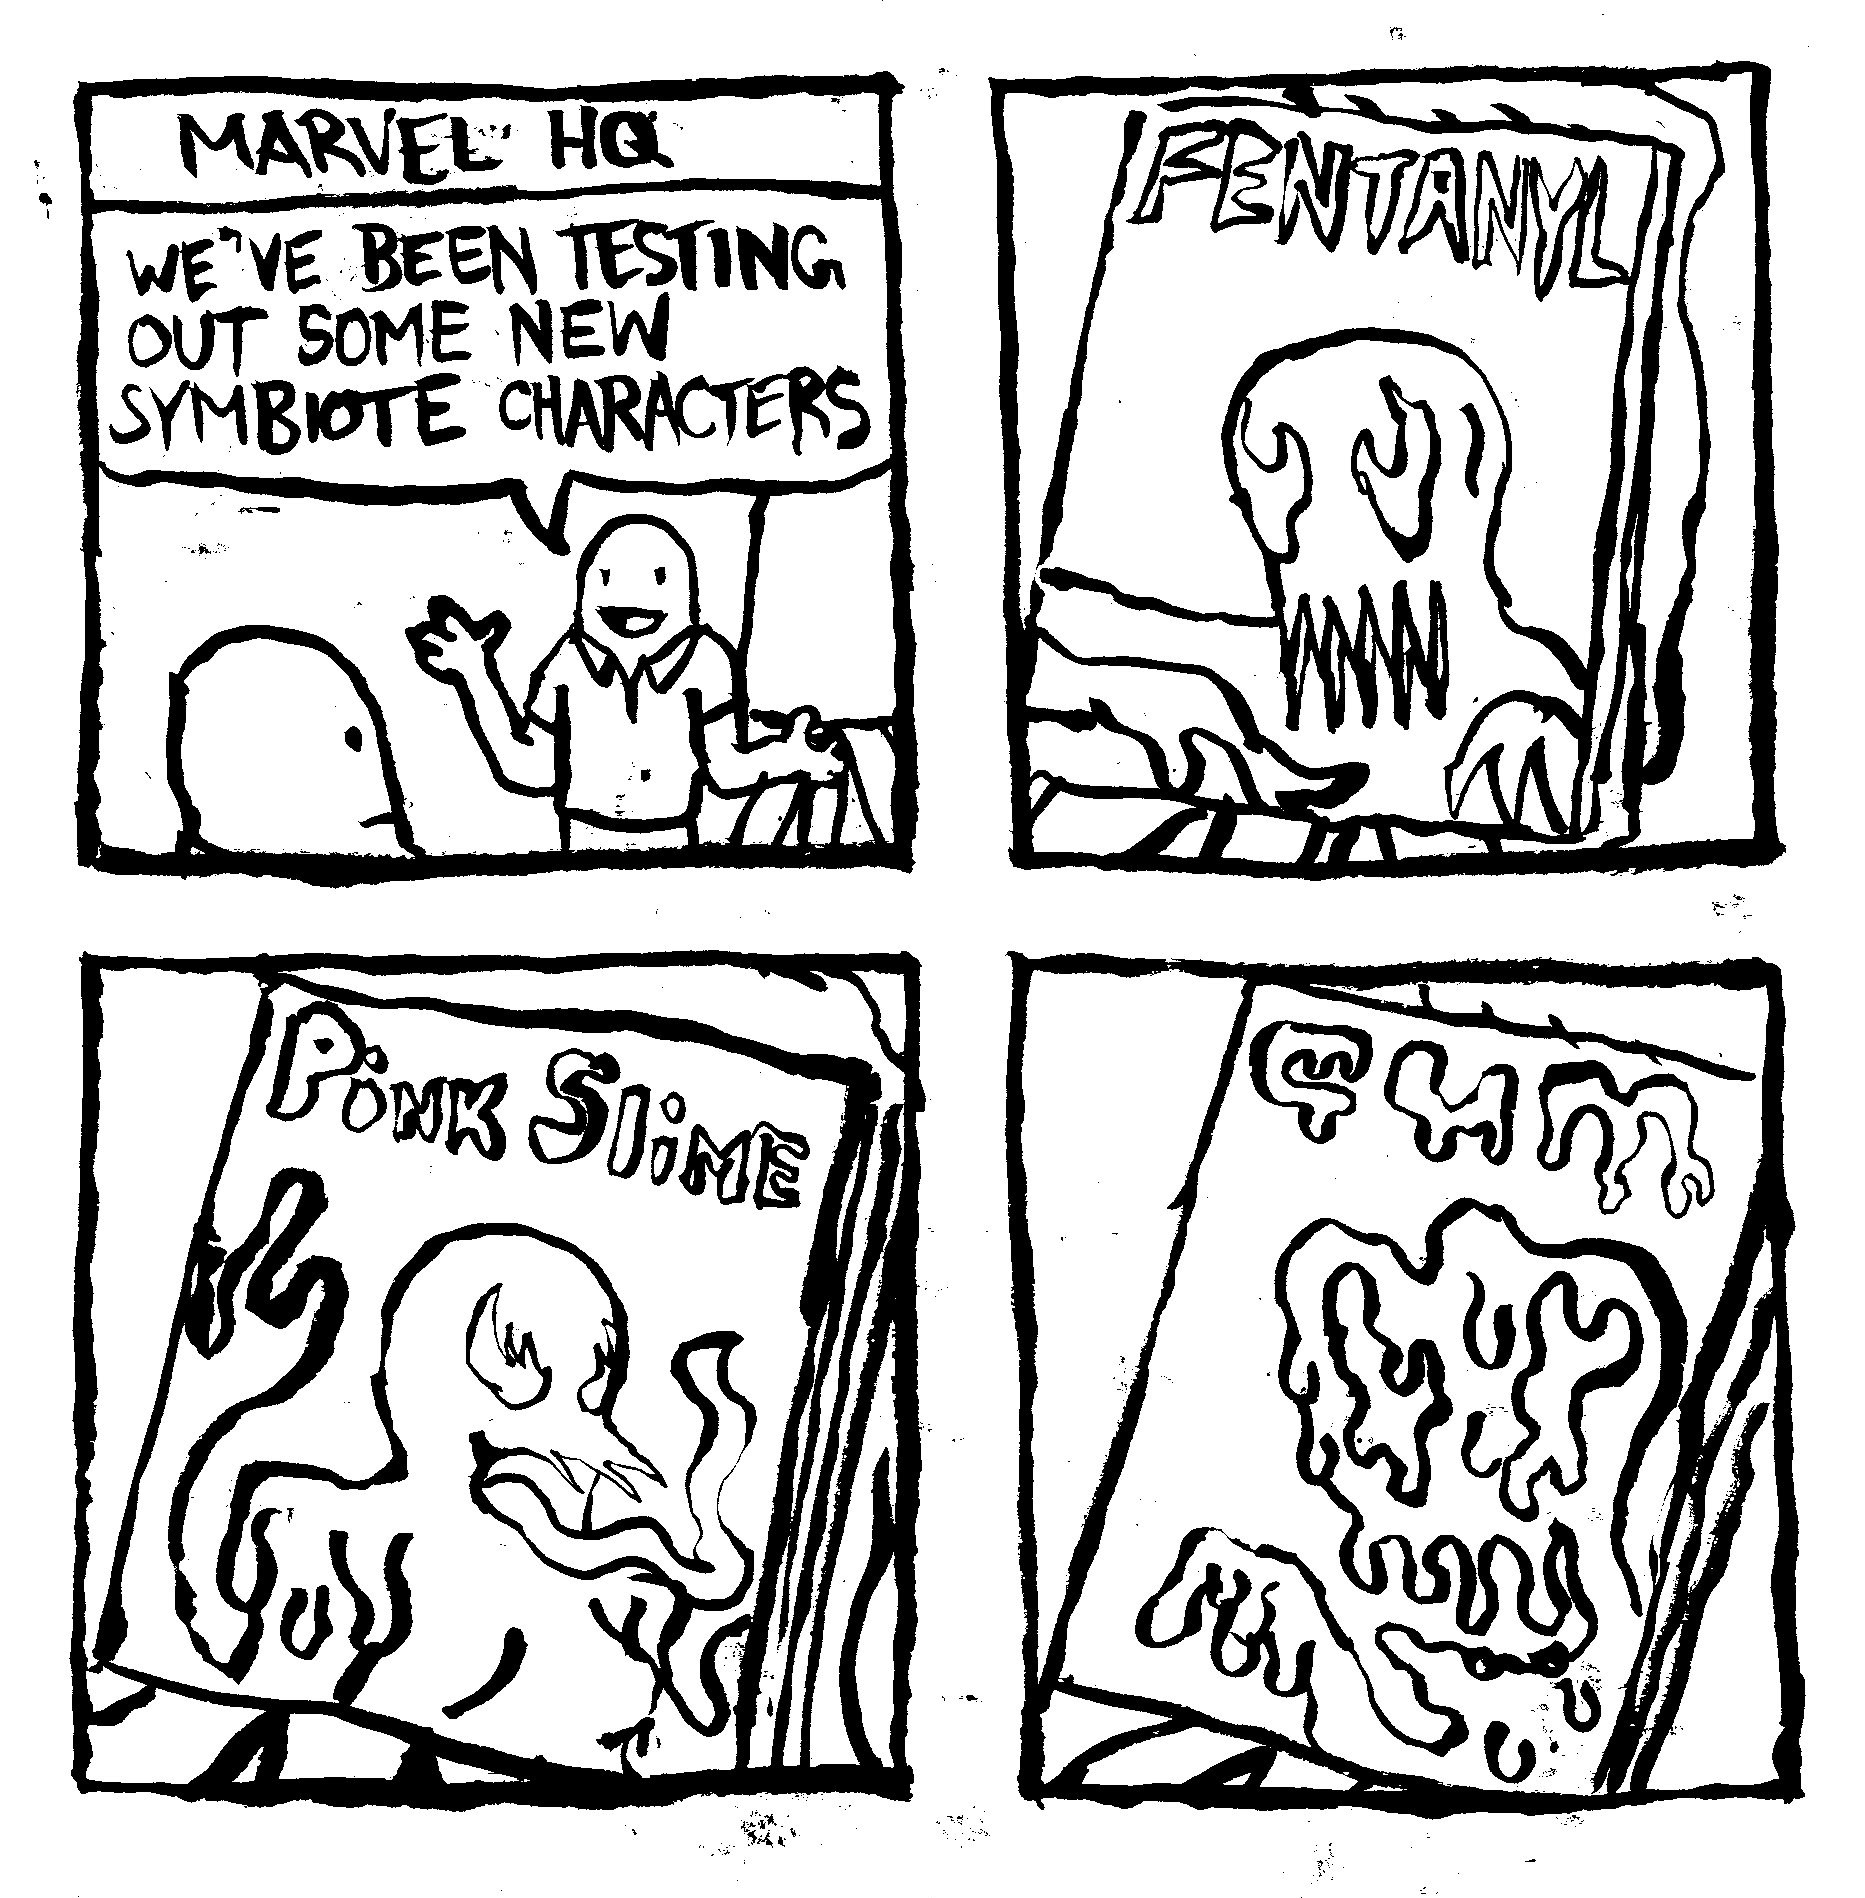 MARVEL HQ
WE'VE BEEN TESTING
OUT SOME NEW
SYMBIOTE CHARACTERS
FENTANYL
PiNK SliME
CUM